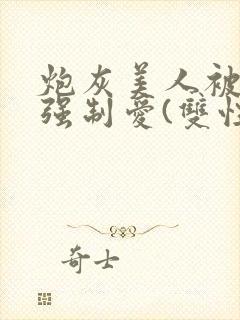 炮灰美人被
强制爱(雙性
奇士